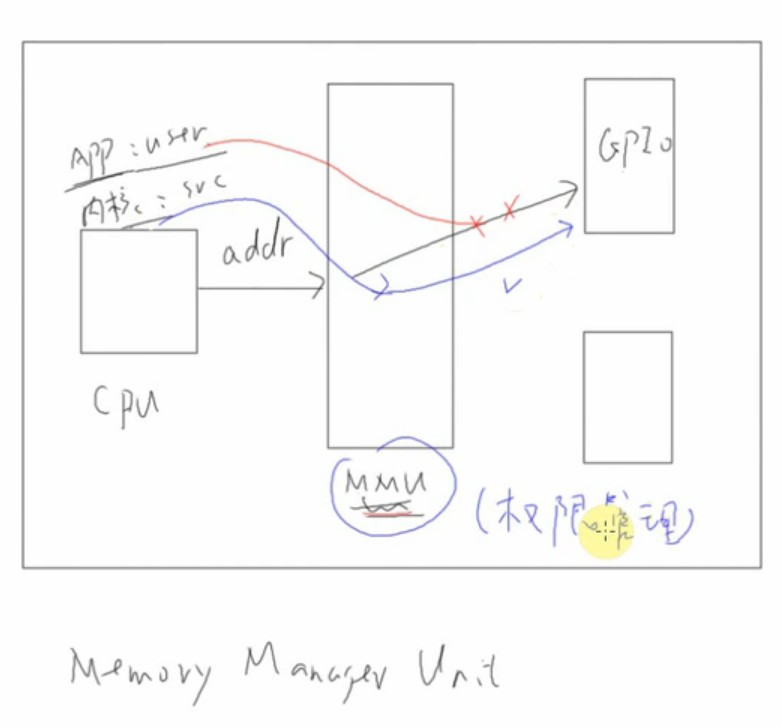 APP : user
内核 : svc
addr
GPIO
CPU
MMU
(权限管理)
Memory Manager Unit